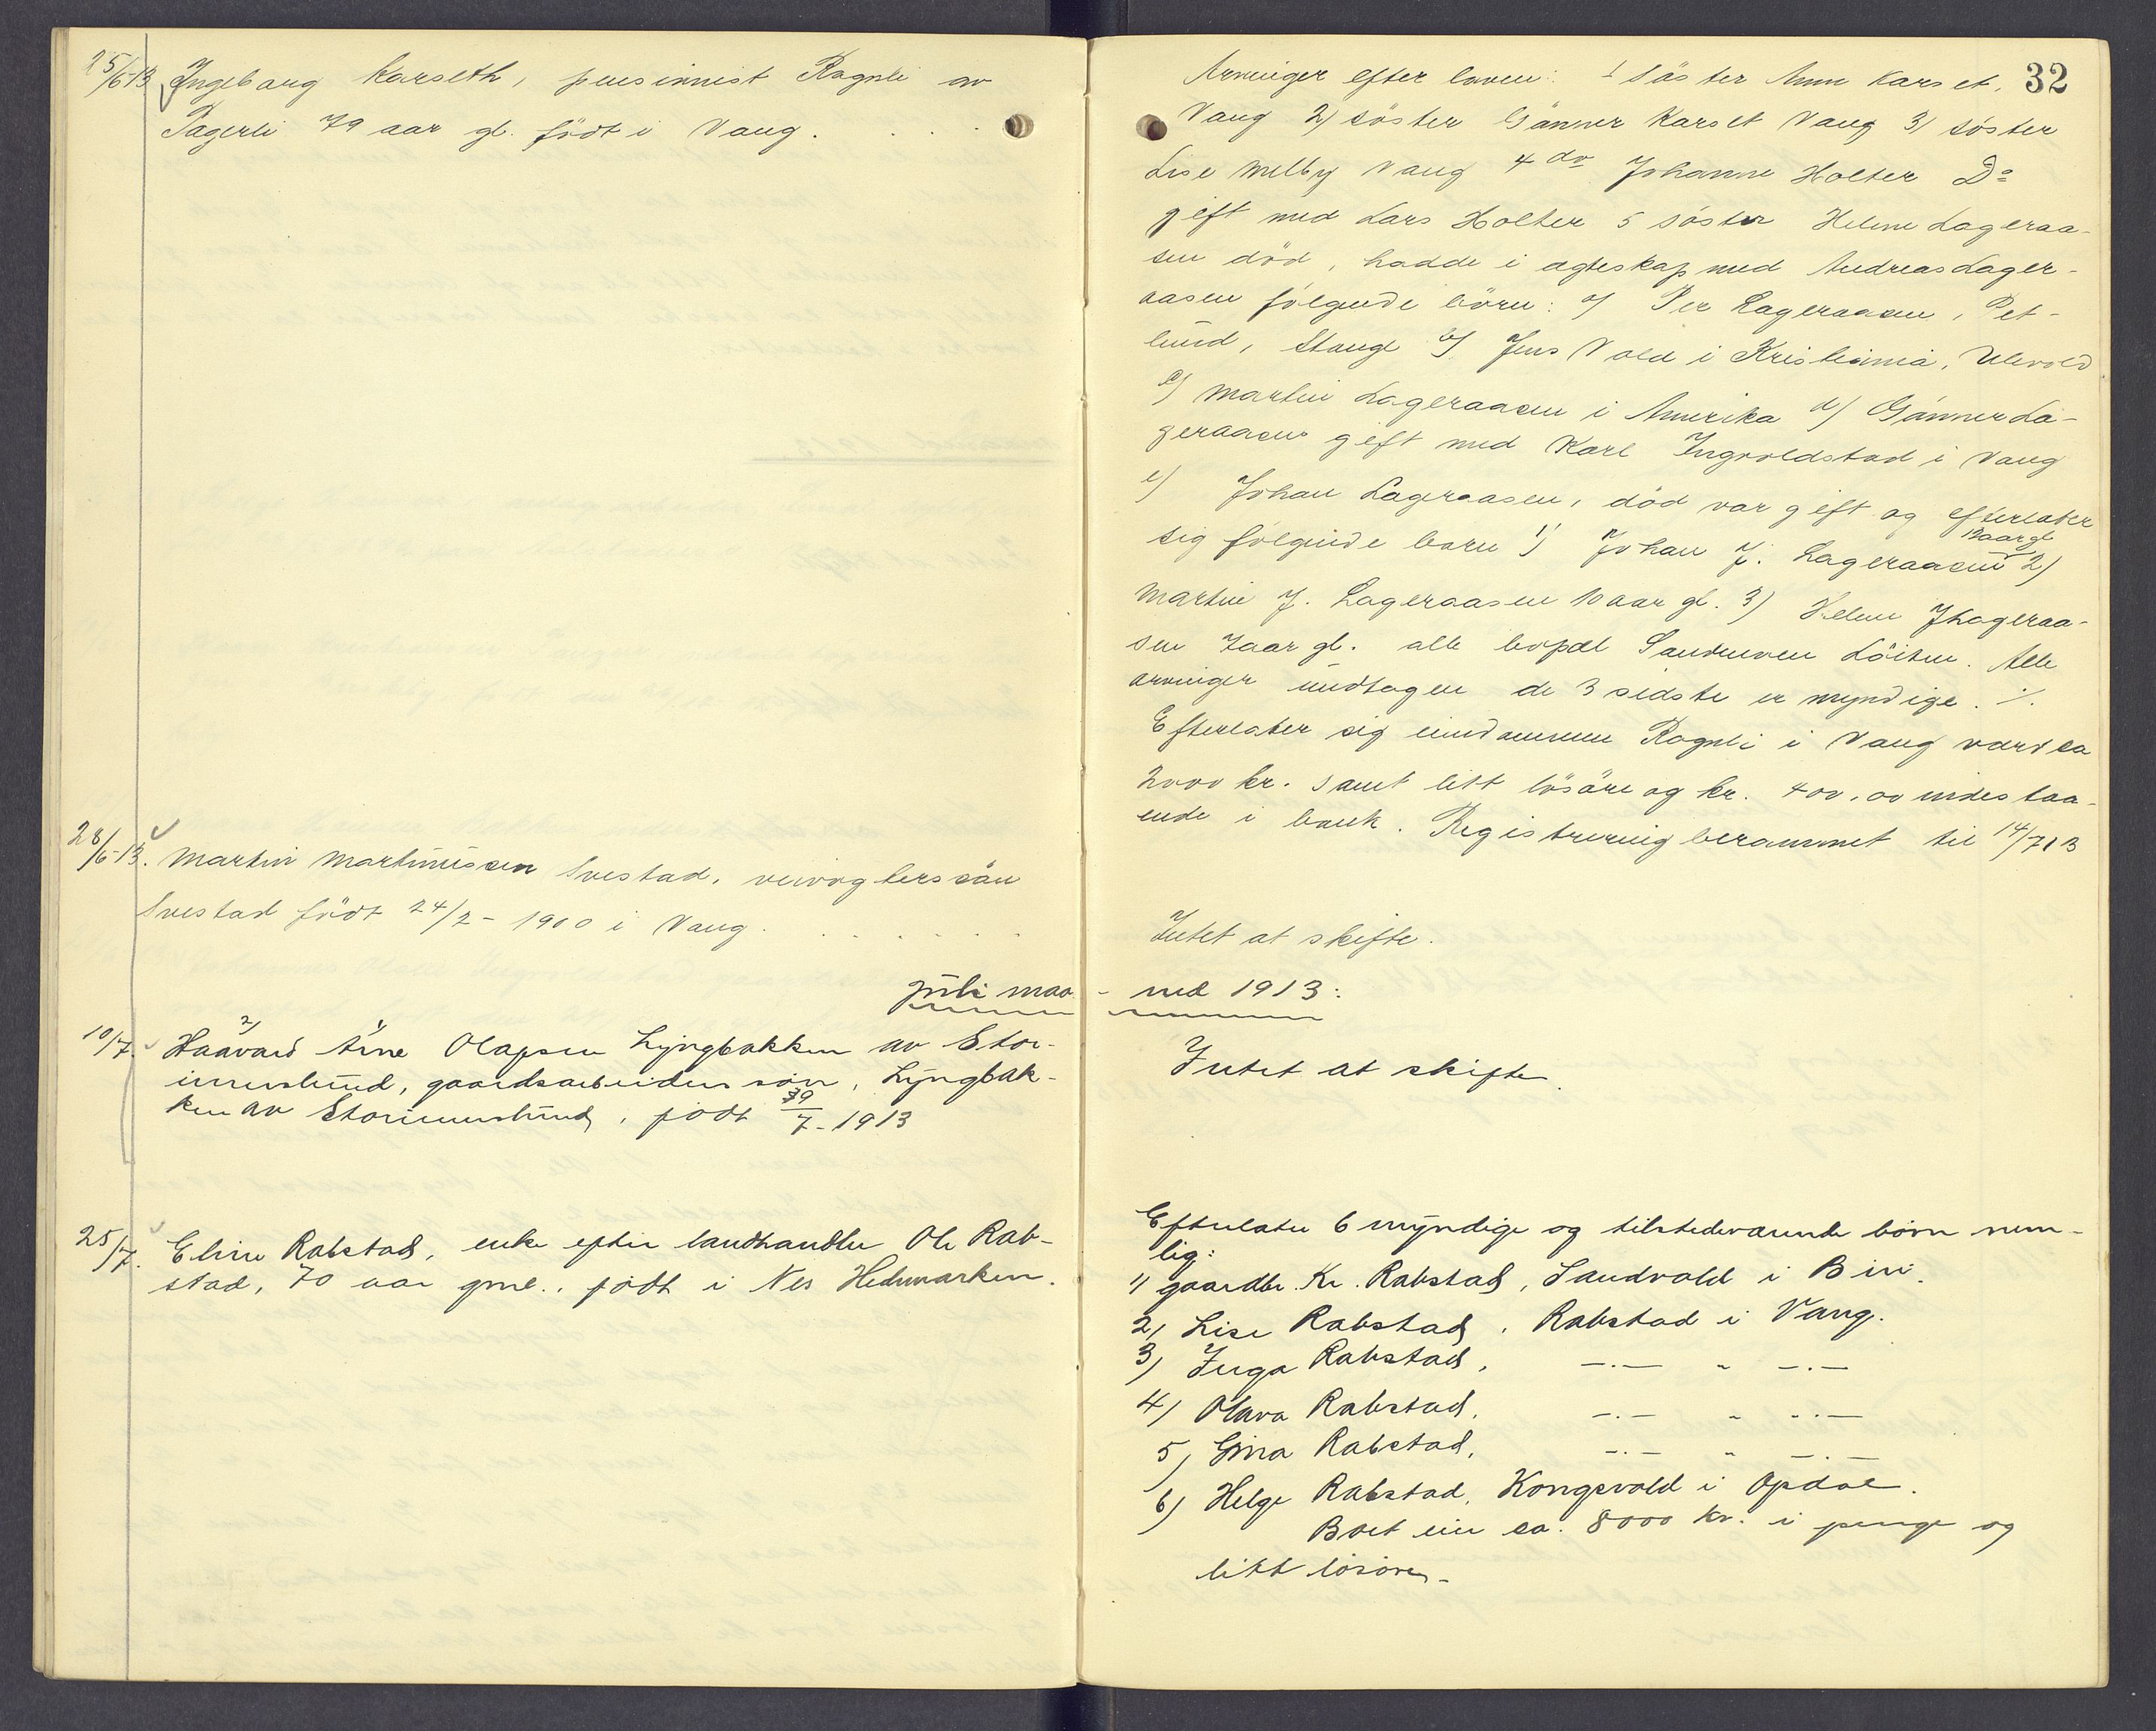 25/6-13 Ingeborg Karseth, pensinnist Rognli av
Pagerli 79 aar gl. födt i Vang. . . . .
28/6-13. Martin Martinissen Svestad, veivogterssön
Svestad födt 24/2-1900 i Vang. . . . . . .
juli maa-
10/7. Haavard Arne Olafsen Lyngbakken av Stor-
imerslund, gaardsarbeiders sön, Lyngbak-
ken av Storimerslund, födt 9/7-1913
25/7. Eline Rabstad, enke efter landhandler Ole Rab-
stad, 70 aar gml., födt i Nes Hedmarken.
32
Arvinger efter loven: 1 söster Anne Karset,
Vang 2) söster Gunner Karset Vang 3) söster
Lise Melby Vang 4 do Johanne Holter Do
gift med Lars Holter 5 söster Helene Lageraa-
sen död, hadde i egteskap med Andreas Lager-
aasen fölgende börn: a) Per Lageraasen, Pet-
lund, Stange b) Jens Vold i Kristiania, Ulevold
c) Martin Lageraasen i Amerika d) Gunner La-
geraasen gift med Karl Ingvoldstad i Vang
e) Johan Lageraasen, död var gift og efterlater
sig fölgende barn 1) Johan J. Lageraasen 13 aar gl 2)
Martin J. Lageraasen 10 aar gl. 3) Helene J Lageraa-
sen 7 aar gl. alle bopæl Sandmoen Löiten. Alle
arvinger undtagen de 3 sidste er myndige. ./.
Efterlater sig eiendommen Rognli i Vang værd ca
2000 kr. samt litt lösöre og kr. 400,00 indestaa-
ende i bank. Registrering berammet til 14/7 13
Intet at skifte.
ned 1913:
Intet at skifte.
Efterlater 6 myndige og tilstedeværende börn nem-
lig:
1) gaardbr. Kr. Rabstad, Sandvold i Biri.
2) Lise Rabstad, Rabstad i Vang.
3) Inga Rabstad, —.— " —.—
4) Olava Rabstad, —.— " —.—
5) Gina Rabstad, —.— " —.—
6) Helge Rabstad, Kongsvold i Opdal.
Boet eier ca. 8000 kr. i penge og
litt lösöre.